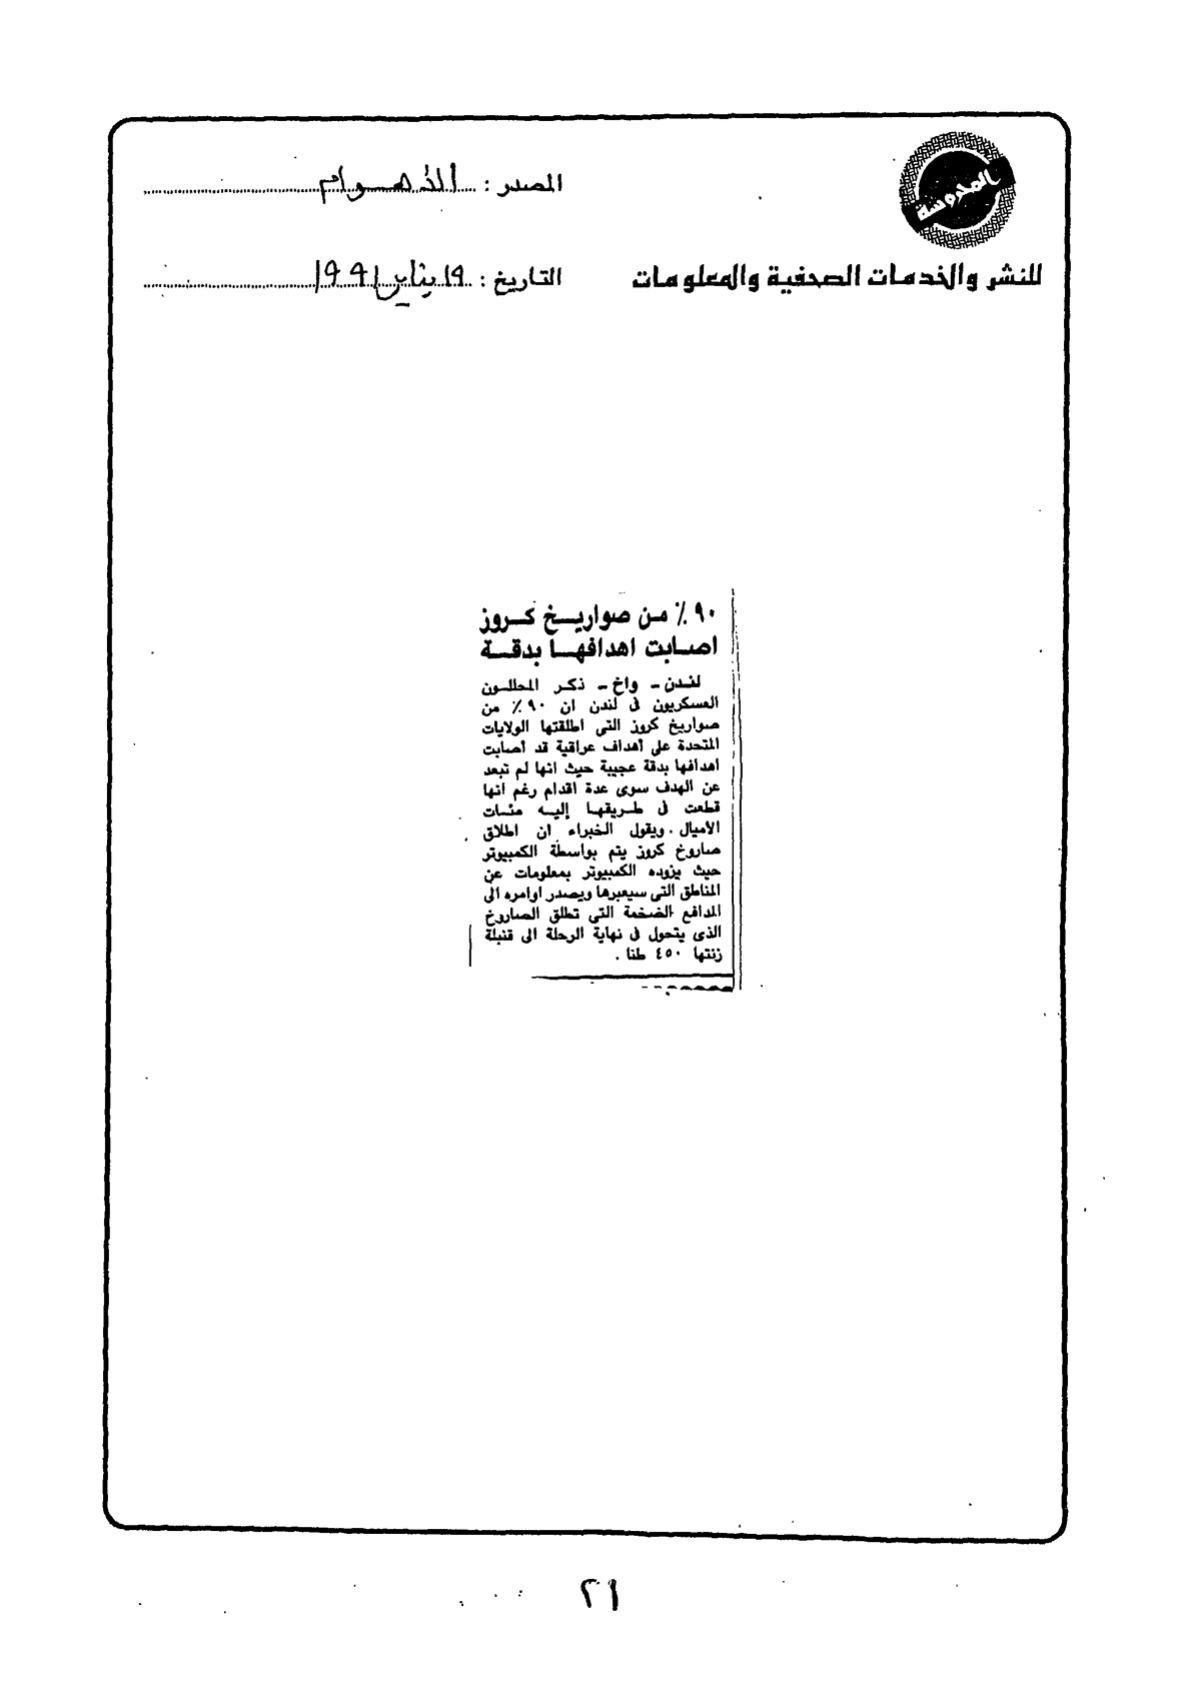 المحروسة
للنشر والخدمات الصحفية والمعلومات
المصدر : الأهرام
التاريخ : ١٩ يناير ١٩٩١
٩٠٪ من صواريخ كروز
اصابت اهدافها بدقة
لندن - واخ - ذكر المحللون
العسكريون فى لندن ان ٩٠٪ من
صواريخ كروز التى اطلقتها الولايات
المتحدة على أهداف عراقية قد أصابت
اهدافها بدقة عجيبة حيث انها لم تبعد
عن الهدف سوى عدة اقدام رغم انها
قطعت فى طريقها إليه مئات
الأميال . ويقول الخبراء ان اطلاق
صاروخ كروز يتم بواسطة الكمبيوتر
حيث يزوده الكمبيوتر بمعلومات عن
المناطق التى سيعبرها ويصدر اوامره الى
المدافع الضخمة التى تطلق الصاروخ
الذى يتحول فى نهاية الرحلة الى قنبلة
زنتها ٤٥٠ طنا .
٢١